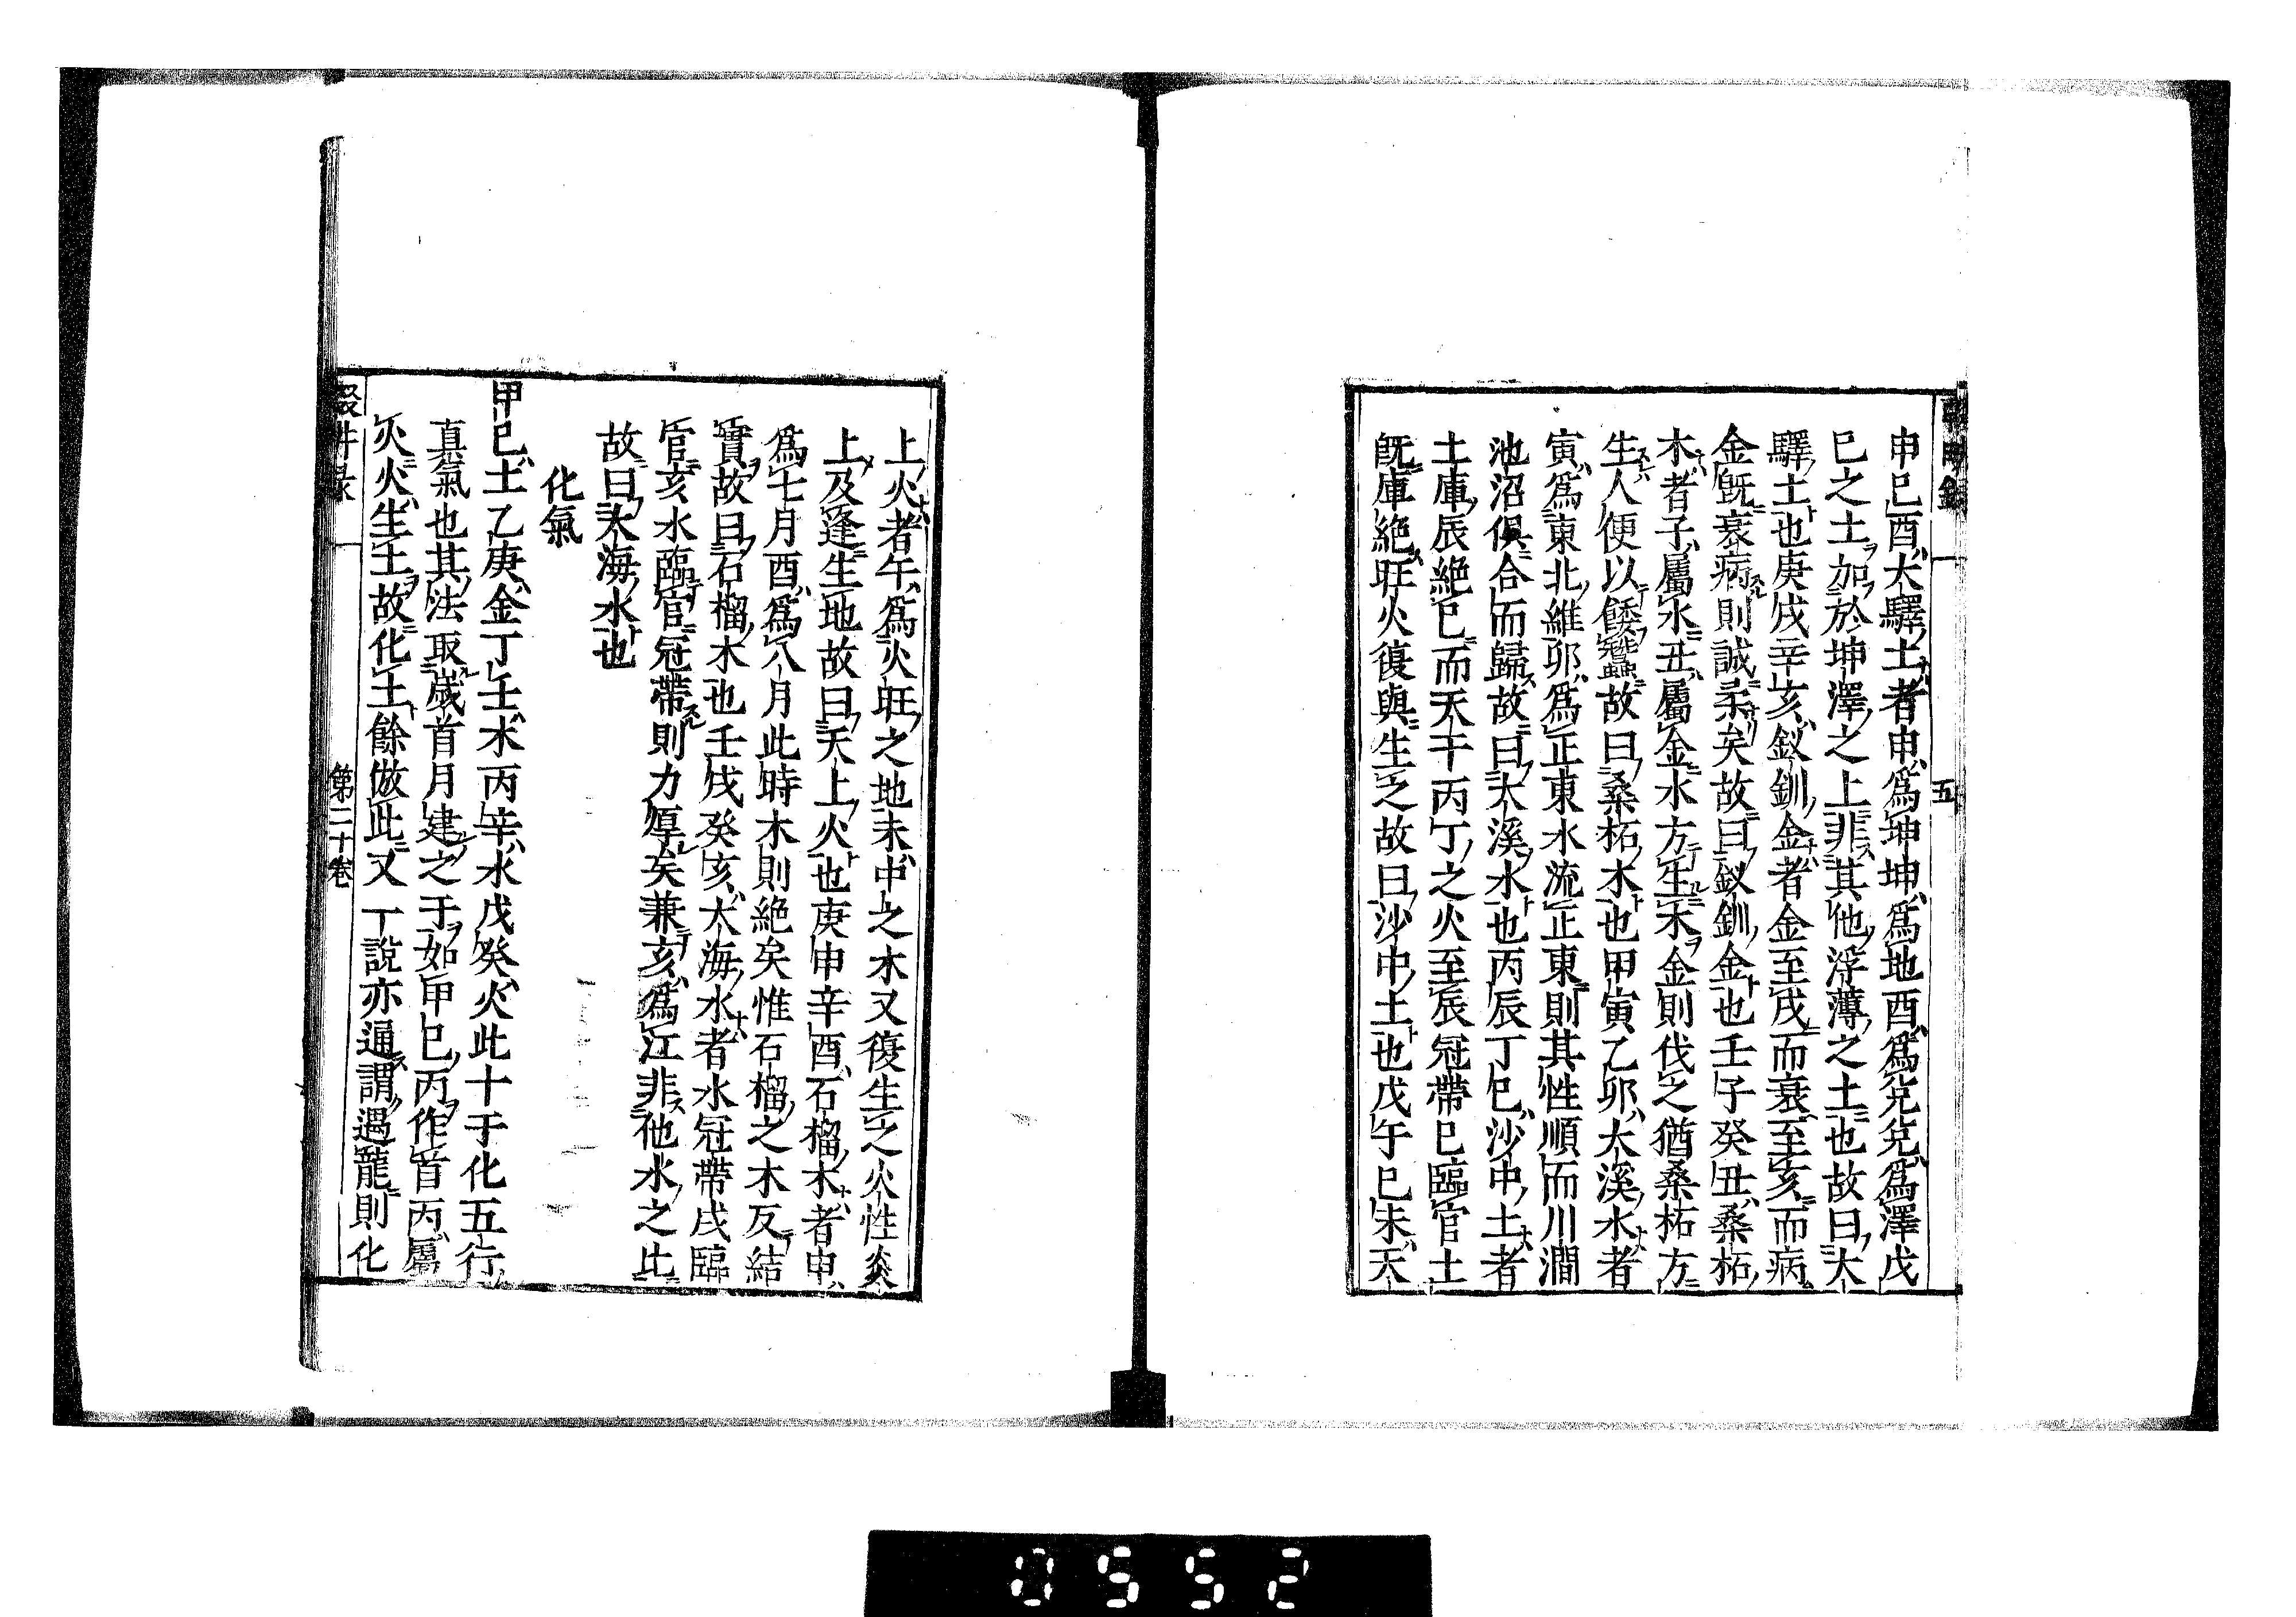 申己酉大驛土者申爲坤坤爲地酉爲兌兌爲澤戊
己之土加於坤澤之上非其他浮薄之土也故曰大
驛土也庚戌辛亥釵釧金者金至戌而衰至亥而病
金旣衰病則誠柔矣故曰釵釧金也壬子癸丑桑柘
木者子屬水丑屬金水方生木金則伐之猶桑柘方
生人便以餧蠶故曰桑柘木也甲寅乙卯大溪水者
寅爲東北維卯爲正東水流正東則其性順而川澗
池沼俱合而歸故曰大溪水也丙辰丁巳沙中土者
土庫辰絶巳而天干丙丁之火至辰冠帶巳臨官土
旣庫絶旺火復與生之故曰沙中土也戊午己未天
五
上火者午爲火旺之地未中之木又復生之火性炎
上及逢生地故曰天上火也庚申辛酉石榴木者申
爲七月酉爲八月此時木則絶矣惟石榴之木反結
實故曰石榴木也壬戌癸亥大海水者水冠帶戌臨
官亥水臨官冠帶則力厚矣兼亥爲江非他水之比
故曰大海水也
化氣
甲己土乙庚金丁壬木丙辛水戊癸火此十干化五行
真氣也其法取歲首月建之干如甲己丙作首丙屬
火火生土故化土餘倣此又一說亦通謂遇龍則化
輟畊录 第二十卷